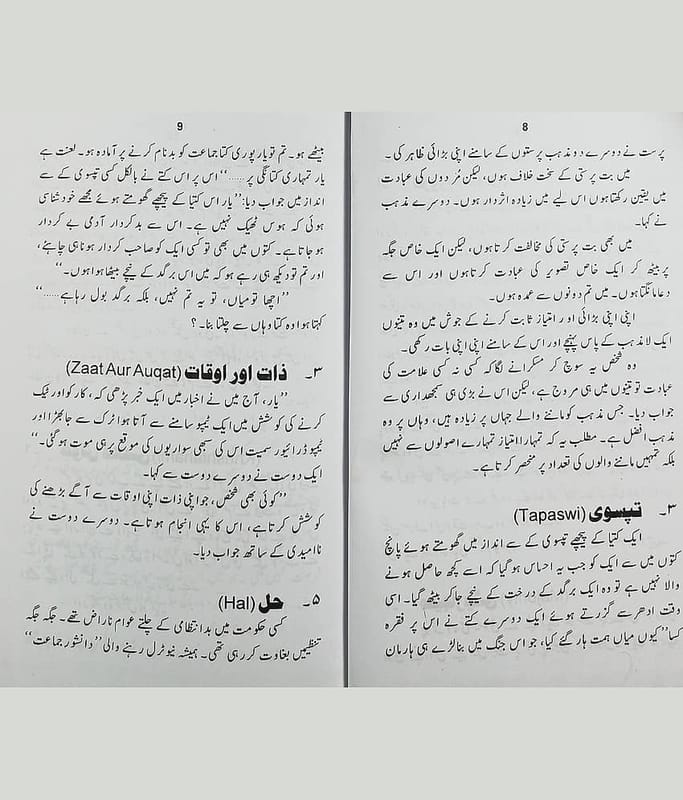 8
پرست نے دوسرے دو مذہب پرستوں کے سامنے اپنی بڑائی ظاہر کی۔
میں بت پرستی کے سخت خلاف ہوں، لیکن مُردوں کی عبادت
میں یقین رکھتا ہوں اس لیے میں زیادہ اثر دار ہوں۔ دوسرے مذہب
نے کہا۔
میں بھی بت پرستی کی مخالفت کرتا ہوں، لیکن ایک خاص جگہ
پر بیٹھ کر ایک خاص تصویر کی عبادت کرتا ہوں اور اس سے
دعا مانگتا ہوں۔ میں تم دونوں سے عمدہ ہوں۔
اپنی اپنی بڑائی اور امتیاز ثابت کرنے کے جوش میں وہ تینوں
ایک لامذہب کے پاس پہنچے اور اس کے سامنے اپنی اپنی بات رکھی۔
وہ شخص یہ سوچ کر مسکرانے لگا کہ کسی نہ کسی علامت کی
عبادت تو تینوں میں ہی مروج ہے، لیکن اس نے بڑی ہی سمجھداری سے
جواب دیا۔ جس مذہب کو ماننے والے جہاں پر زیادہ ہیں، وہاں پر وہ
مذہب افضل ہے۔ مطلب یہ کہ تمہارا امتیاز تمہارے اصولوں سے نہیں
بلکہ تمہیں ماننے والوں کی تعداد پر منحصر کرتا ہے۔
۳۔ تپسوی (Tapaswi)
ایک کتیا کے پیچھے تپسوی کے سے انداز میں گھومتے ہوئے پانچ
کتوں میں سے ایک کو جب یہ احساس ہو گیا کہ اسے کچھ حاصل ہونے
والا نہیں ہے تو وہ ایک برگد کے درخت کے نیچے جا کر بیٹھ گیا۔ اسی
وقت ادھر سے گزرتے ہوئے ایک دوسرے کتے نے اس پر فقرہ
کسا ”کیوں میاں ہمت ہار گئے کیا، جو اس جنگ میں بنا لڑے ہی ہار مان
9
بیٹھے ہو۔ تم تو یار پوری کتا جماعت کو بدنام کرنے پر آمادہ ہو۔ لعنت ہے
یار تمہاری کتا نگی پر......“ اس پر اس کتے نے بالکل کسی تپسوی کے سے
انداز میں جواب دیا: ”یار اس کتیا کے پیچھے گھومتے ہوئے مجھے خود شناسی
ہوئی کہ ہوس ٹھیک نہیں ہے۔ اس سے بد کردار آدمی بے کردار
ہو جاتا ہے۔ کتوں میں بھی تو کسی ایک کو صاحب کردار ہونا ہی چاہئے،
اور تم تو دیکھ ہی رہے ہو کہ میں اس برگد کے نیچے بیٹھا ہوا ہوں۔“
”اچھا تو میاں، تو یہ تم نہیں، بلکہ برگد بول رہا ہے......“
کہتا ہوا وہ کتا وہاں سے چلتا بنا۔؟
۳۔ ذات اور اوقات (Zaat Aur Auqat)
”یار، آج میں نے اخبار میں ایک خبر پڑھی کہ، کار کو اور ٹیک
کرنے کی کوشش میں ایک ٹیمپو سامنے سے آتا ہوا ٹرک سے جا بھڑا اور
ٹیمپو ڈرائیور سمیت اس کی سبھی سواریوں کی موقع پر ہی موت ہو گئی۔“
ایک دوست نے دوسرے دوست سے کہا۔
”کوئی بھی شخص، جو اپنی ذات اپنی اوقات سے آگے بڑھنے کی
کوشش کرتا ہے، اس کا یہی انجام ہوتا ہے۔ دوسرے دوست نے
ناامیدی کے ساتھ جواب دیا۔
۵۔ حل (Hal)
کسی حکومت میں بد انتظامی کے چلتے عوام ناراض تھے۔ جگہ جگہ
تنظیمیں بغاوت کر رہی تھی۔ ہمیشہ نیوٹرل رہنے والی ”دانشور جماعت“